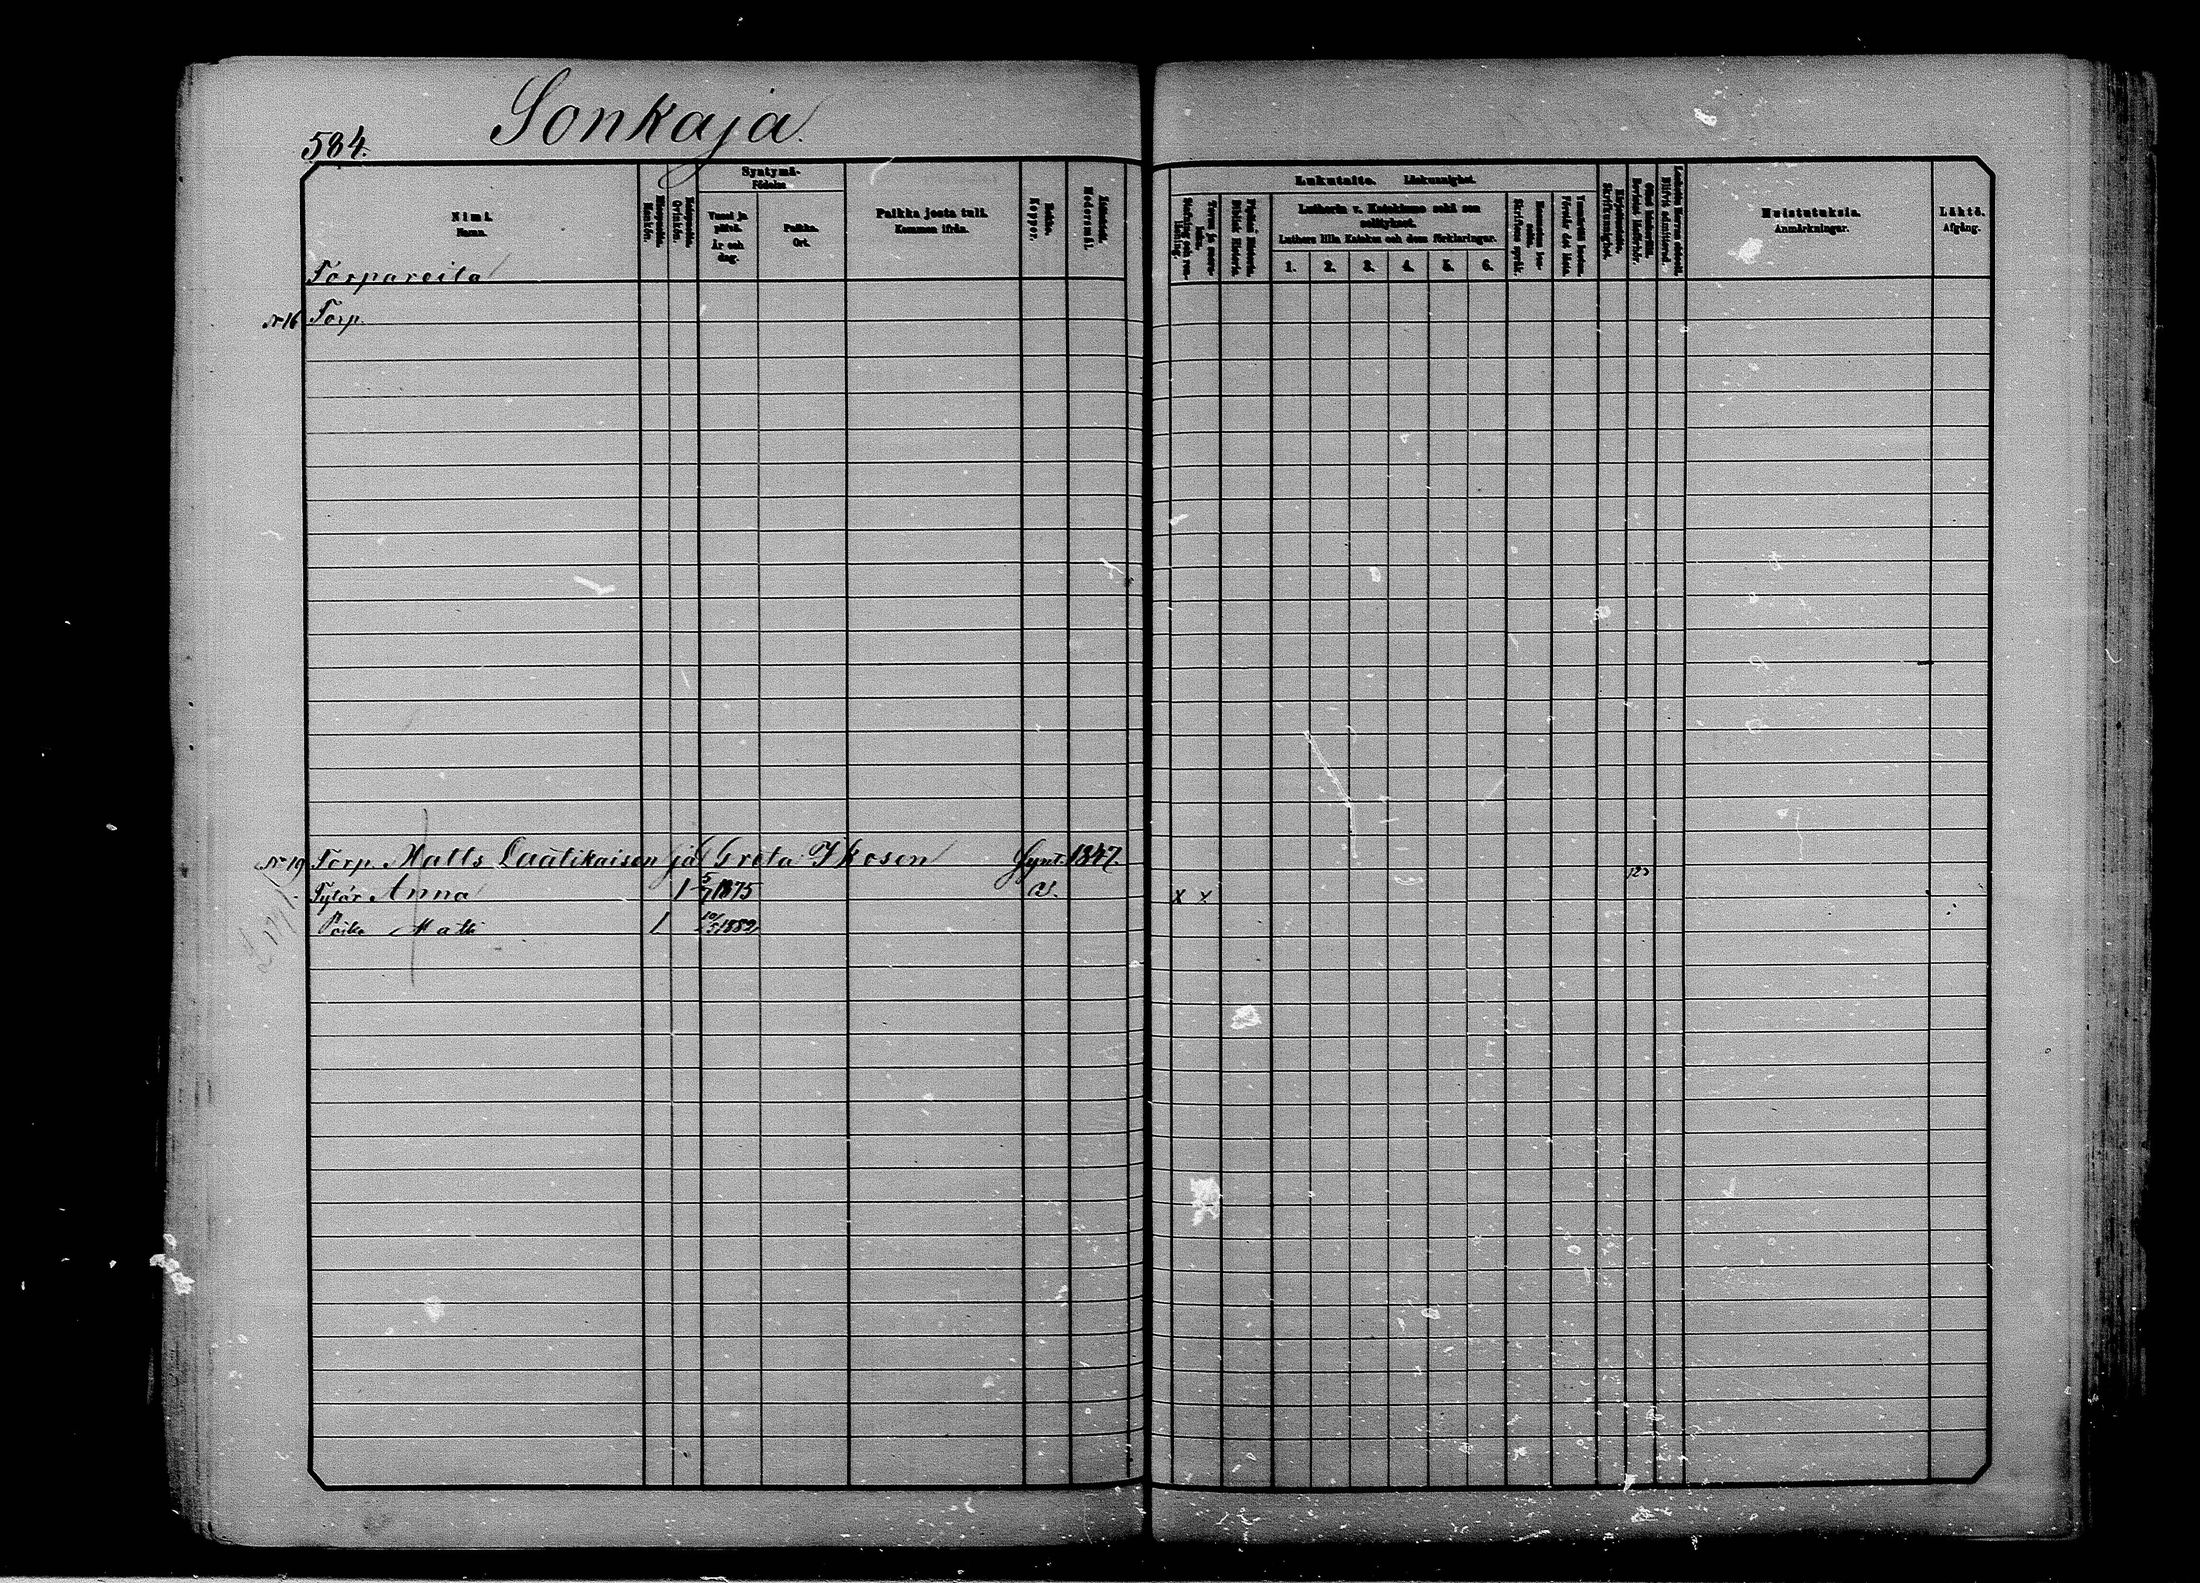 584. Sonkaja
Syntymä-
Födelse
Nimi.
Namn.
Miespuolia.
Mankön.
Vaimopuolia.
Qvinkön.
Vuosi ja päivä.
År och dag.
Paikka.
Ort.
Paikka josta tuli.
Kommen ifrån.
Rokko.
Koppor.
Modersmål.
Lukutaito. Läskunnighet.
Lutherin v. Katekismo sekä sen selityksiä.
Luthers lilla Katekes och dess förklaringar.
1. 2. 3. 4. 5. 6.
Muistutuksia.
Anmärkningar.
Lähtö.
Afgång.
Torpareita
N 16 Torp.
N 19 Torp. Matts Laatikaisen ja Greta Ikosen Synt. 1847.
Tytär Anna 1 5/7 1875 x x
Poika Matti 1 10/5 1882